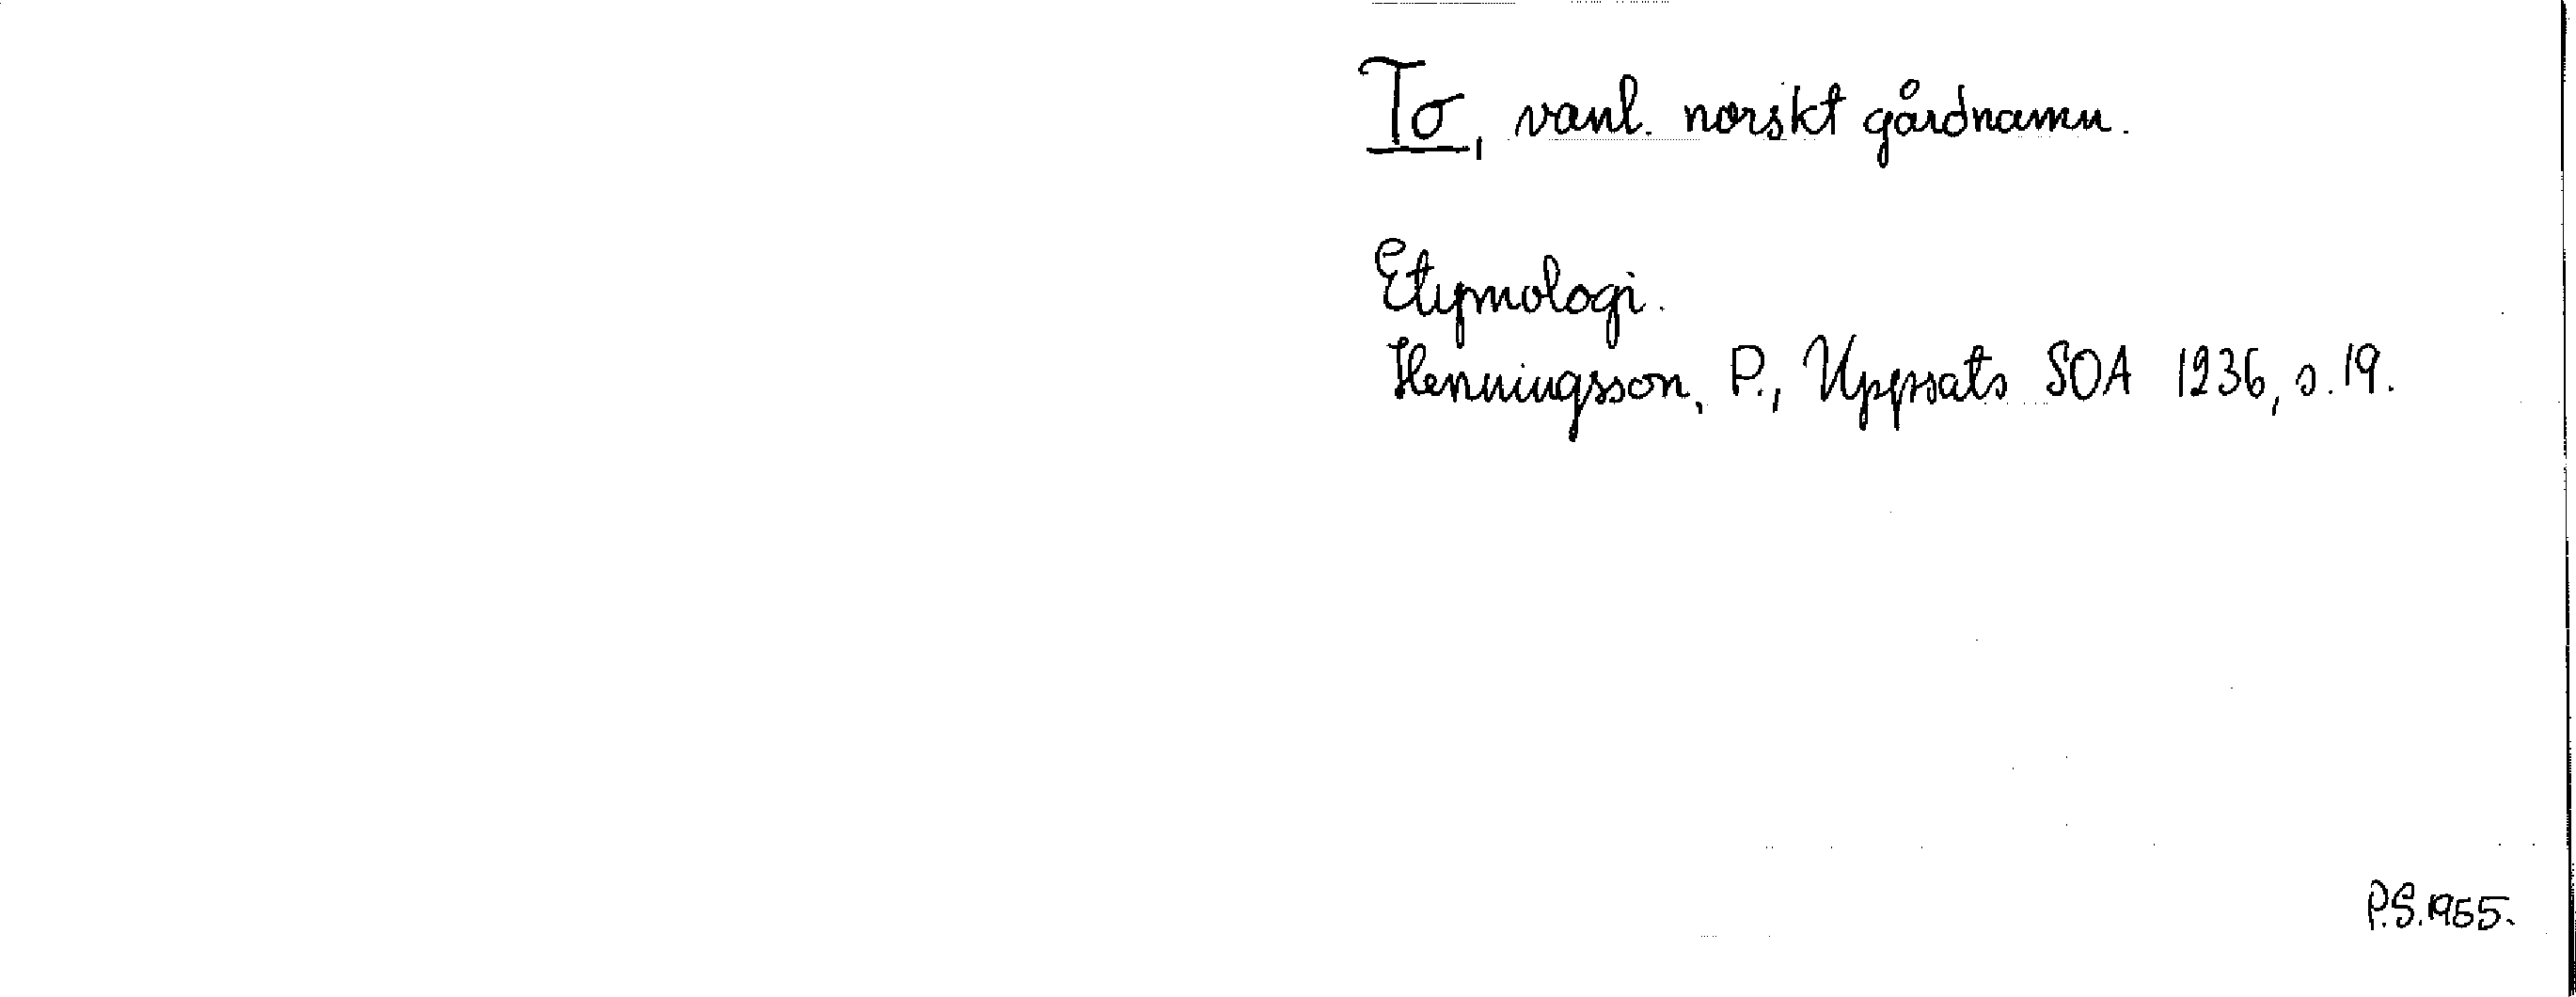 To, vanl. norskt gårdnamn.
Etymologi.
Henningsson, P., Uppsats SOA 1236, s. 19.
P.S. 1965.